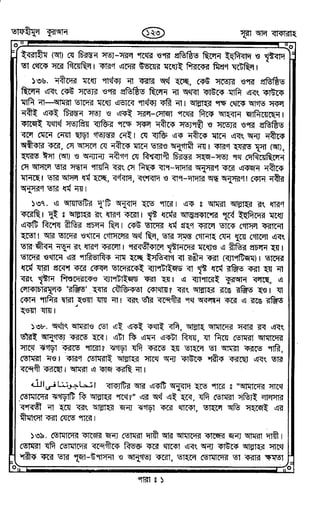 তাফহীমুল কুরআন
১২৩
সূরা আল বাকারাহ
ইবরাহীম (আ) যে চিরন্তন সত্য-সরল পথের ওপর প্রতিষ্ঠিত ছিলেন ইহুদিবাদ ও খৃষ্টবাদ
তা থেকে সরে গিয়েছিল। কারণ এদের উভয়ের মধ্যেই শিরকের মিশ্রণ ঘটেছিল।
১৩৬. নবীদের মধ্যে পার্থক্য না করার অর্থ হচ্ছে, কেউ সত্যের ওপর প্রতিষ্ঠিত
ছিলেন এবং কেউ সত্যের ওপর প্রতিষ্ঠিত ছিলেন না অথবা কাউকে মানি এবং কাউকে
মানি না—আমরা তাদের মধ্যে এভাবে পার্থক্য করি না। আল্লাহর পক্ষ থেকে আগত সকল
নবীই একই চিরন্তন সত্য ও একই সরল-সোজা পথের দিকে আহবান জানিয়েছেন।
কাজেই যথার্থ সত্যপ্রিয় ব্যক্তির পক্ষে সকল নবীকে সত্যপন্থী ও সত্যের ওপর প্রতিষ্ঠিত
বলে মেনে নেয়া ছাড়া গত্যন্তর নেই। যে ব্যক্তি এক নবীকে মানে এবং অন্য নবীকে
অস্বীকার করে, সে আসলে যে নবীকে মানে তারও অনুগামী নয়। কারণ হযরত মূসা (আ),
হযরত ঈসা (আ) ও অন্যান্য নবীগণ যে বিশ্বব্যাপী চিরন্তন সহজ-সত্য পথ দেখিয়েছিলেন
সে আসলে তার সন্ধান পায়নি বরং সে নিছক বাপ-দাদার অনুসরণ করে একজন নবীকে
মানছে। তার আসল ধর্ম হচ্ছে, বর্ণবাদ, বংশবাদ ও বাপ-দাদার অন্ধ অনুসরণ। কোন নবীর
অনুসরণ তার ধর্ম নয়।
১৩৭. এ আয়াতটির দু'টি অনুবাদ হতে পারে। এক : আমরা আল্লাহর রং ধারণ
করেছি। দুই : আল্লাহর রং ধারণ করো। খৃষ্ট ধর্মের আত্মপ্রকাশের পূর্বে ইহুদিদের মধ্যে
একটি বিশেষ রীতির প্রচলন ছিল। কেউ তাদের ধর্ম গ্রহণ করলে তাকে গোসল করানো
হতো। আর তাদের ওখানে গোসলের অর্থ ছিল, তার সমস্ত গোনাহ যেন ধুয়ে গেলো এবং
তার জীবন নতুন রং ধারণ করলো। পরবর্তীকালে খৃষ্টানদের মধ্যেও এ রীতির প্রচলন হয়।
তাদের ওখানে এর পারিভাষিক নাম হচ্ছে ইসতিবাগ বা রঙীন করা (ব্যাপটিজম)। তাদের
ধর্মে যারা প্রবেশ করে কেবল তাদেরকেই ব্যাপটাইজড বা খৃষ্ট ধর্মে রঞ্জিত করা হয় না
বরং খৃষ্টান শিশুদেরকেও ব্যাপটাইজড করা হয়। এ ব্যাপারেই কুরআন বলছে, এ
লোকাচারমূলক 'রঞ্জিত' হবার যৌক্তিকতা কোথায়? বরং আল্লাহর রঙে রঞ্জিত হও। যা
কোন পানির দ্বারা হওয়া যায় না। বরং তাঁর বন্দেগীর পথ অবলম্বন করে এ রঙে রঞ্জিত
হওয়া যায়।
১৩৮. অর্থাৎ আমরাও তো এই একই কথাই বলি, আল্লাহ আমাদের সবার রব এবং
তাঁরই আনুগত্য করতে হবে। এটা কি এমন একটা বিষয়, যা নিয়ে তোমরা আমাদের
সাথে ঝগড়া করতে পারো? ঝগড়া যদি করতে হয় তাহলে তা আমরা করতে পারি,
তোমরা নও। কারণ তোমরাই আল্লাহর সাথে অন্য কাউকে শরীক করছো এবং তার
বন্দেগী করছো। আমরা এ কাজ করছি না।
اتحاجوننا فى الله বাক্যটির আর একটি অনুবাদ হতে পারে : “আমাদের সাথে
তোমাদের ঝগড়াটি কি আল্লাহর পথে?” এর অর্থ এই হবে, যদি তোমরা সত্যিই লালসার
বশবর্তী না হয়ে বরং আল্লাহর জন্য ঝগড়া করে থাকো, তাহলে অতি সহজেই এর
মীমাংসা করা যেতে পারে।
১৩৯. তোমাদের কাজের জন্য তোমরা দায়ী আর আমাদের কাজের জন্য আমরা দায়ী।
তোমরা যদি তোমাদের বন্দেগীকে বিভক্ত করে থাকো এবং অন্য কাউকে আল্লাহর সাথে
শরীক করে তার পূজা-উপাসনা ও আনুগত্য করো, তাহলে তোমাদের তা করার ক্ষমতা
পারা : ১